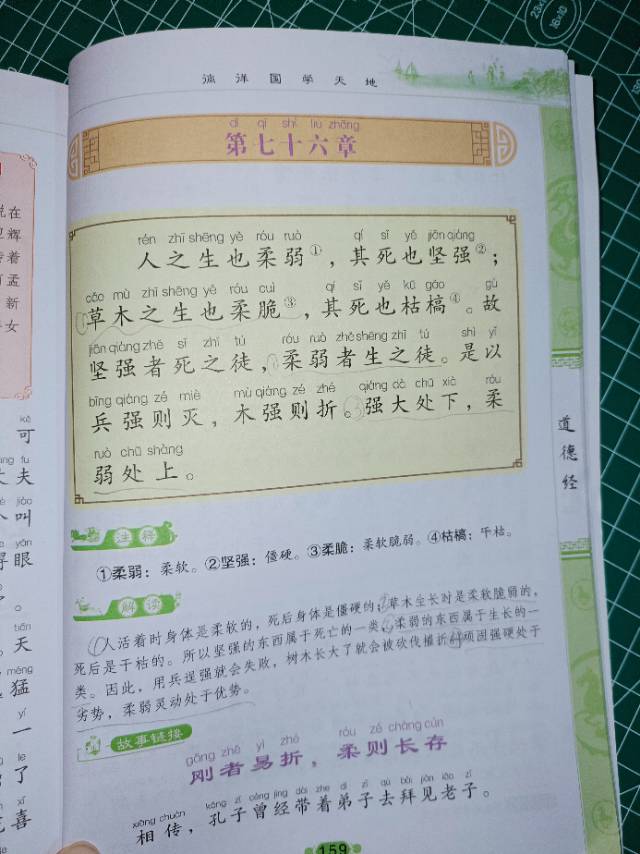 流洋国学天地
dì qī shí liù zhāng
第七十六章
rén zhī shēng yě róu ruò qí sǐ yě jiān qiáng
人之生也柔弱①，其死也坚强②；
cǎo mù zhī shēng yě róu cuì qí sǐ yě kū gǎo gù
草木之生也柔脆③，其死也枯槁④。故
jiān qiáng zhě sǐ zhī tú róu ruò zhě shēng zhī tú shì yǐ
坚强者死之徒，柔弱者生之徒。是以
bīng qiáng zé miè mù qiáng zé zhé qiáng dà chǔ xià róu
兵强则灭，木强则折。强大处下，柔
ruò chǔ shàng
弱处上。
注释
①柔弱：柔软。②坚强：僵硬。③柔脆：柔软脆弱。④枯槁：干枯。
解读
①人活着时身体是柔软的，死后身体是僵硬的；②草木生长时是柔软脆弱的，
死后是干枯的。所以坚强的东西属于死亡的一类，③柔弱的东西属于生长的一
类。因此，用兵逞强就会失败，树木长大了就会被砍伐摧折。④顽固强硬处于
劣势，柔弱灵动处于优势。
故事链接
gāng zhě yì zhé róu zé cháng cún
刚者易折，柔则长存
xiāng chuán kǒng zǐ céng jīng dài zhe dì zǐ qù bài jiàn lǎo zǐ
相传，孔子曾经带着弟子去拜见老子。
159
道德经
说在
辉
着
孟
新
女
kě
可
fu
丈夫
jiào
叫
yǎn
得眼
。
tiān
天
měng
猛
yí
一
了
xǐ
喜